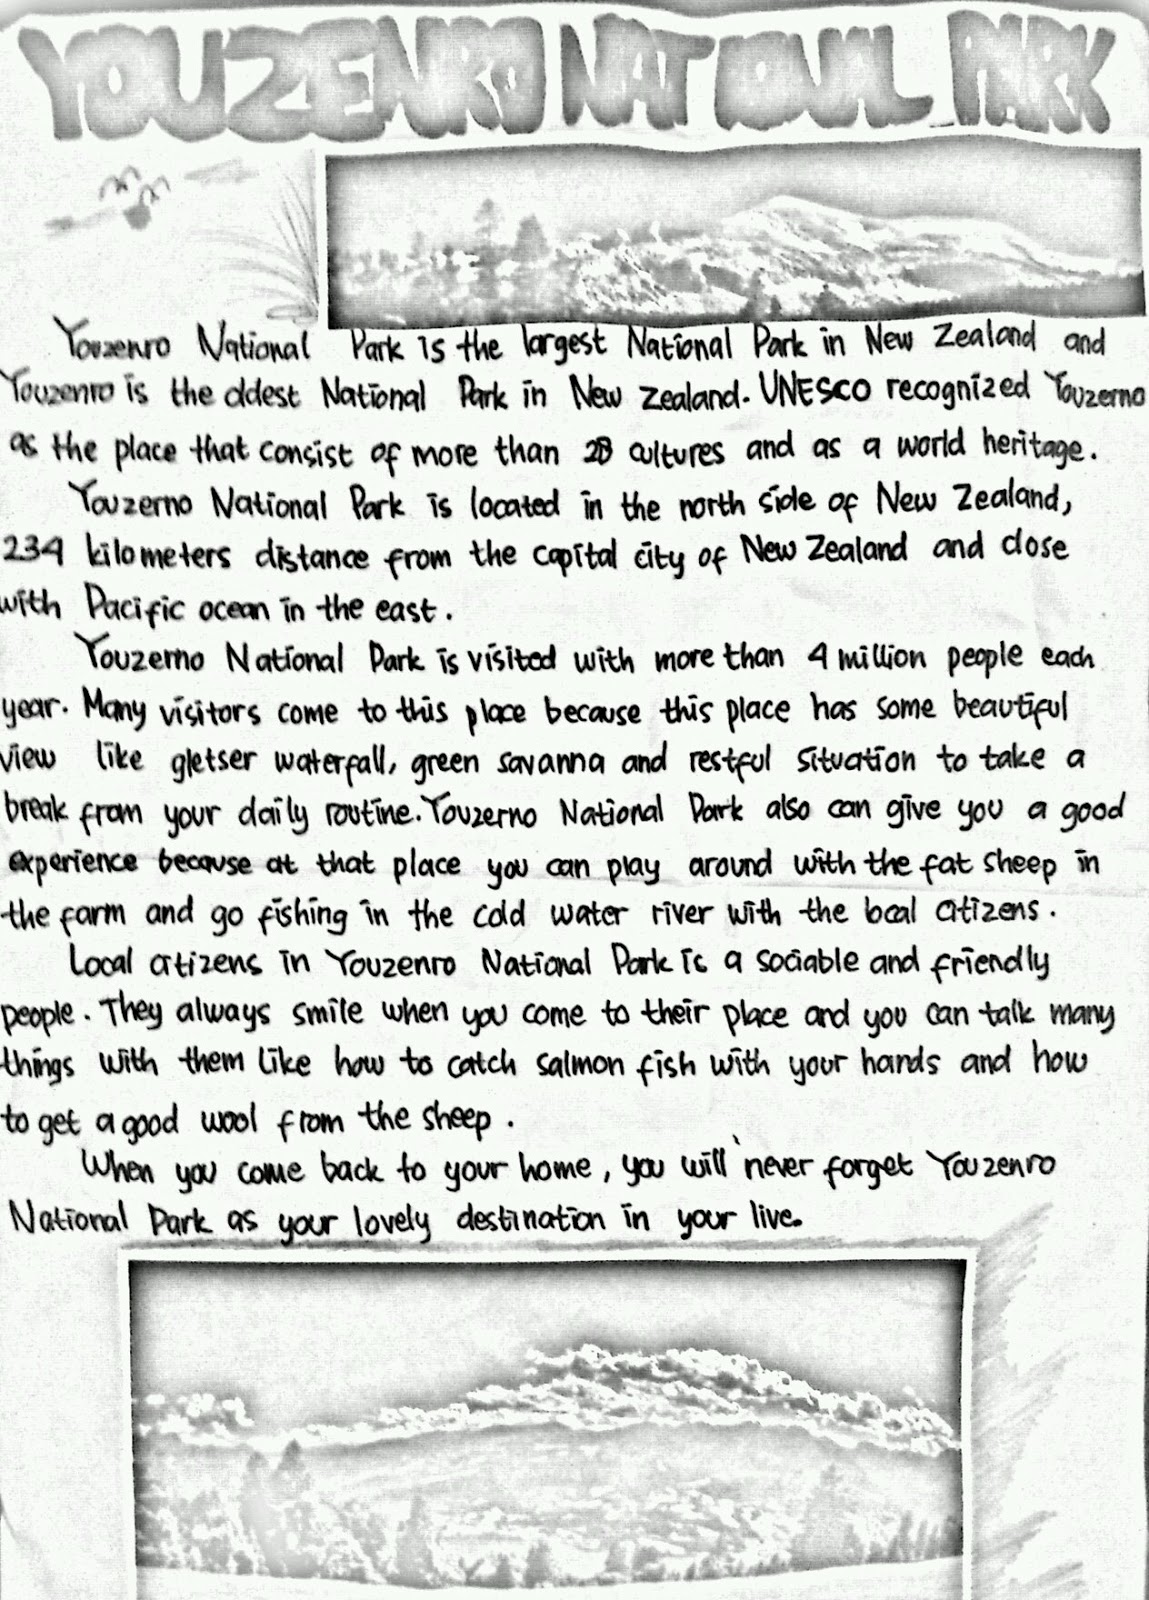 YOUZENRO NATIONAL PARK
Youzenro National Park is the largest National Park in New Zealand and
Youzenro is the oldest National Park in New Zealand. UNESCO recognized Youzerno
as the place that consist of more than 28 cultures and as a world heritage.
Youzerno National Park is located in the north side of New Zealand,
234 kilometers distance from the capital city of New Zealand and close
with Pacific ocean in the east.
Youzerno National Park is visited with more than 4 million people each
year. Many visitors come to this place because this place has some beautiful
view like gletser waterfall, green savanna and restful situation to take a
break from your daily routine. Youzerno National Park also can give you a good
experience because at that place you can play around with the fat sheep in
the farm and go fishing in the cold water river with the local citizens.
Local citizens in Youzenro National Park is a sociable and friendly
people. They always smile when you come to their place and you can talk many
things with them like how to catch salmon fish with your hands and how
to get a good wool from the sheep.
When you come back to your home, you will never forget Youzenro
National Park as your lovely destination in your live.